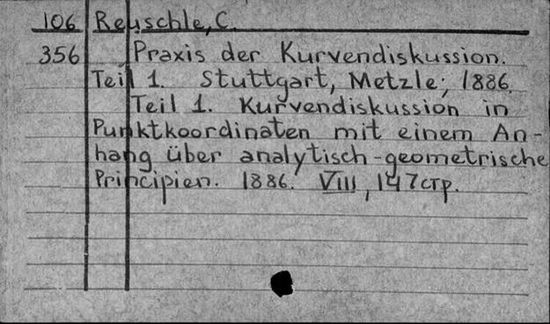 106 Reuschle, C.
356 Praxis der Kurvendiskussion.
Teil 1. Stuttgart, Metzle; 1886.
Teil 1. Kurvendiskussion in
Punktkoordinaten mit einem An-
hang über analytisch-geometrische
Principien. 1886. VIII, 147стр.